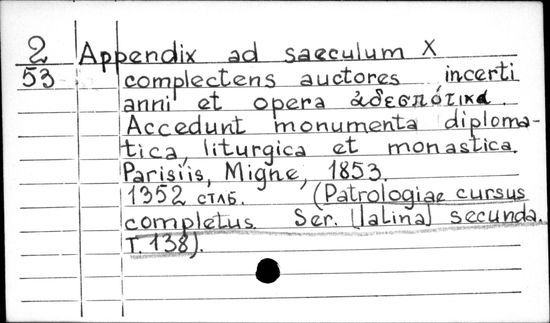 2 Appendix ad saeculum X
53 complectens auctores incerti
anni et opera ἀδεσπότικα.
Accedunt monumenta diploma-
tica, liturgica et monastica.
Parisiis, Migne, 1853.
1352 стлб. (Patrologiae cursus
completus. Ser. [latina] secunda.
T. 138).